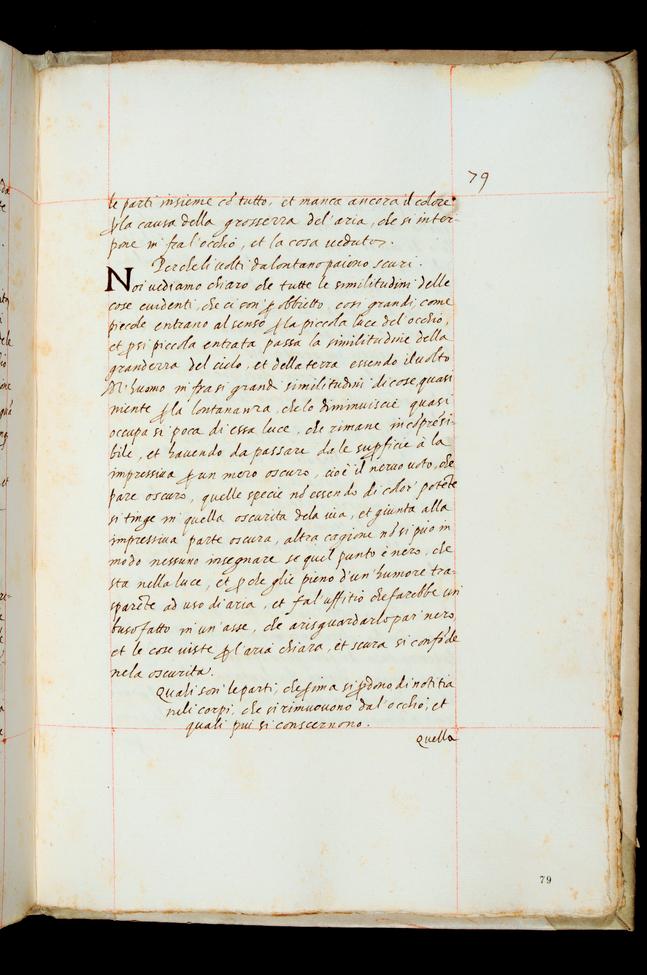 79
le parti insieme cõ tutto, et manca ancora il colore
ꝑ la causa della grossezza del'aria, che si inter-
pone in fra l'occhio, et la cosa veduta.
Perche li volti da lontano paiono scuri.
Noi vediamo chiaro che tutte le similitudini delle
cose evidenti, che ci son ꝑ obbietto, cosi grandi, come
picole entrano al senso ꝑ la piccola luce del'occhio,
et ꝑ si piccola entrata passa la similitudine della
grandezza del cielo, et della terra essendo il volto
del'huomo in fra si grandi similitudini di cose, quasi
niente ꝑ la lontananza, che lo diminuisce quasi
occupa si poca di essa luce, che rimane incõprẽsi-
bile, et havendo da passare da le suꝑficie à la
impressiva ꝑ un mezo oscuro, cioè il nervo voto, che
pare oscuro, quelle specie nõ essendo di color' potẽte
si tinge in quella oscurita dela via, et giunta alla
impressiva parte oscura, altra cagione nõ si puo in
modo nessuno insegnare se quel punto è nero, che
sta nella luce, et ꝑche glie pieno d'un'humore tra-
sparẽte ad uso di aria, et fa l'uffitio che farebbe un
buso fatto in un'asse, che a risguardarlo par' nero,
et le cose viste ꝑ l'aria chiara, et scura si confõde
nela oscurita.
Quali son' le parti, che prima si ꝑdono di notitia
neli corpi, che si rimuovono dal'occhio, et
quali piu si conscernono.
Quella
79